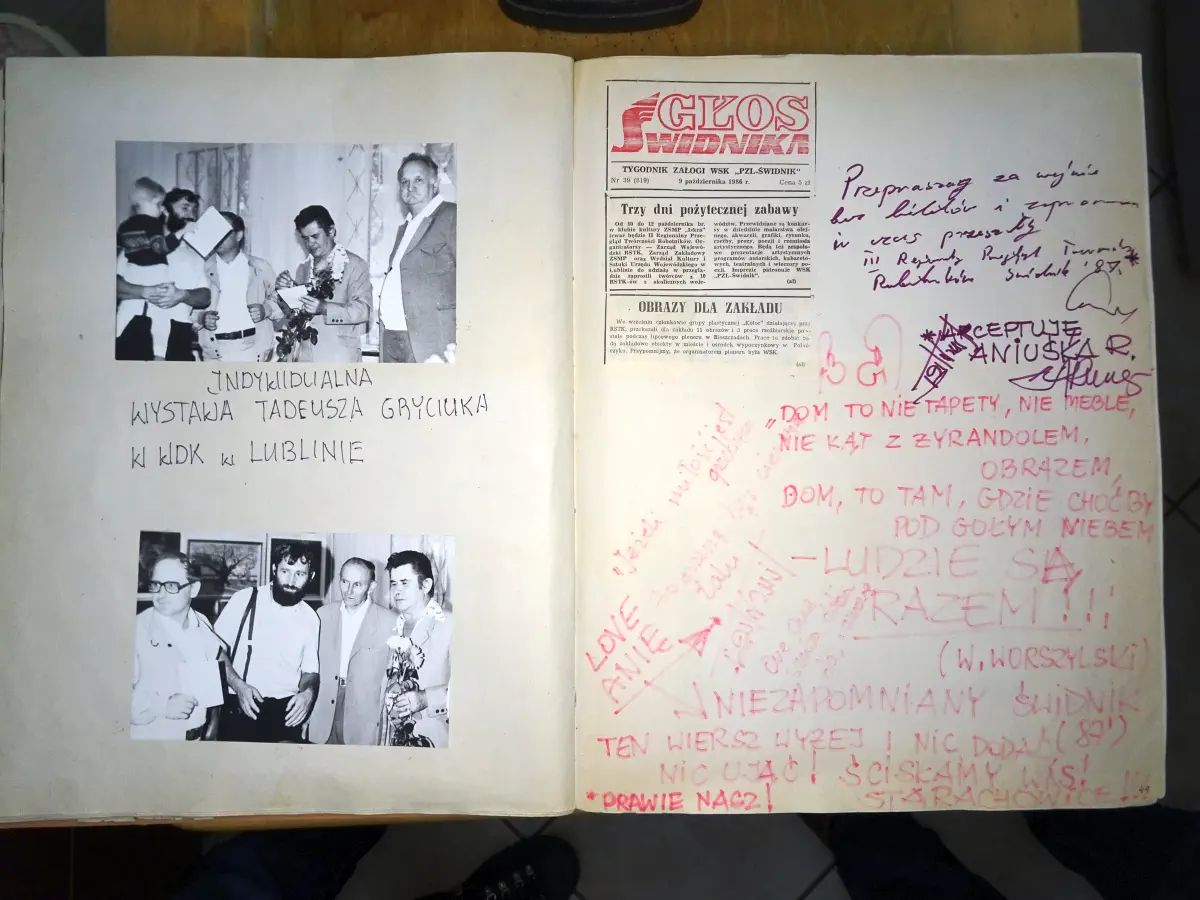 INDYWIDUALNA
WYSTAWA TADEUSZA GRYCIUKA
W WDK w LUBLINIE
GŁOS
ŚWIDNIKA
TYGODNIK ZAŁOGI WSK „PZL-ŚWIDNIK”
Nr 39 (819) 9 października 1986 r. Cena 5 zł
Trzy dni pożytecznej zabawy
Od 10 do 12 października br.
w klubie kultury ZSMP „Iskra”
trwać będzie II Regionalny Prze-
gląd Twórczości Robotników. Or-
ganizatorzy — Zarząd Wojewó-
dzki RSTK, Zarząd Zakładowy
ZSMP oraz Wydział Kultury i
Sztuki Urzędu Wojewódzkiego w
Lublinie do udziału w przeglą-
dzie zaprosili twórców z 10
RSTK-ów z okolicznych woje-
wództw. Przewidziane są konkur-
sy w dziedzinie malarstwa olej-
nego, akwareli, grafiki, rysunku,
rzeźby, prozy, poezji i rzemiosła
artystycznego. Będą też zespoło-
we prezentacje artystycznych
programów autorskich, kabareto-
wych, teatralnych i wieczory po-
ezji. Imprezie patronuje WSK
„PZL-Świdnik”.
OBRAZY DLA ZAKŁADU
We wrześniu członkowie grupy plastycznej „Kolor” działającej przy
RSTK, przekazali dla zakładu 11 obrazów i 3 prace rzeźbiarskie po-
wstałe podczas lipcowego pleneru w Bieszczadach. Prace te zdobić
zakładowe obiekty w mieście i ośrodek wypoczynkowy w
Przypomnijmy, że organizatorem pleneru była WSK.
Przepraszam za wejście
bez biletów i
w czas przeszły
III Regionalny Przegląd Twórczości
Robotników Świdnik 87.
AKCEPTUJĘ
ANIUSKA R.
„DOM TO NIE TAPETY, NIE MEBLE,
NIE KĄT Z ŻYRANDOLEM,
OBRAZEM,
DOM, TO TAM, GDZIE CHOĆBY
POD GOŁYM NIEBEM
– LUDZIE SĄ
RAZEM!!!
(W. WORSZYLSKI)
„Jeżeli miłość jest
LOVE
ANIE
NIEZAPOMNIANY ŚWIDNIK
(87')
TEN WIERSZ WYŻEJ I NIC DODAĆ
NIC UJĄĆ! ŚCISKAMY WAS!
* PRAWIE NACZ! STARACHOWICE!!!